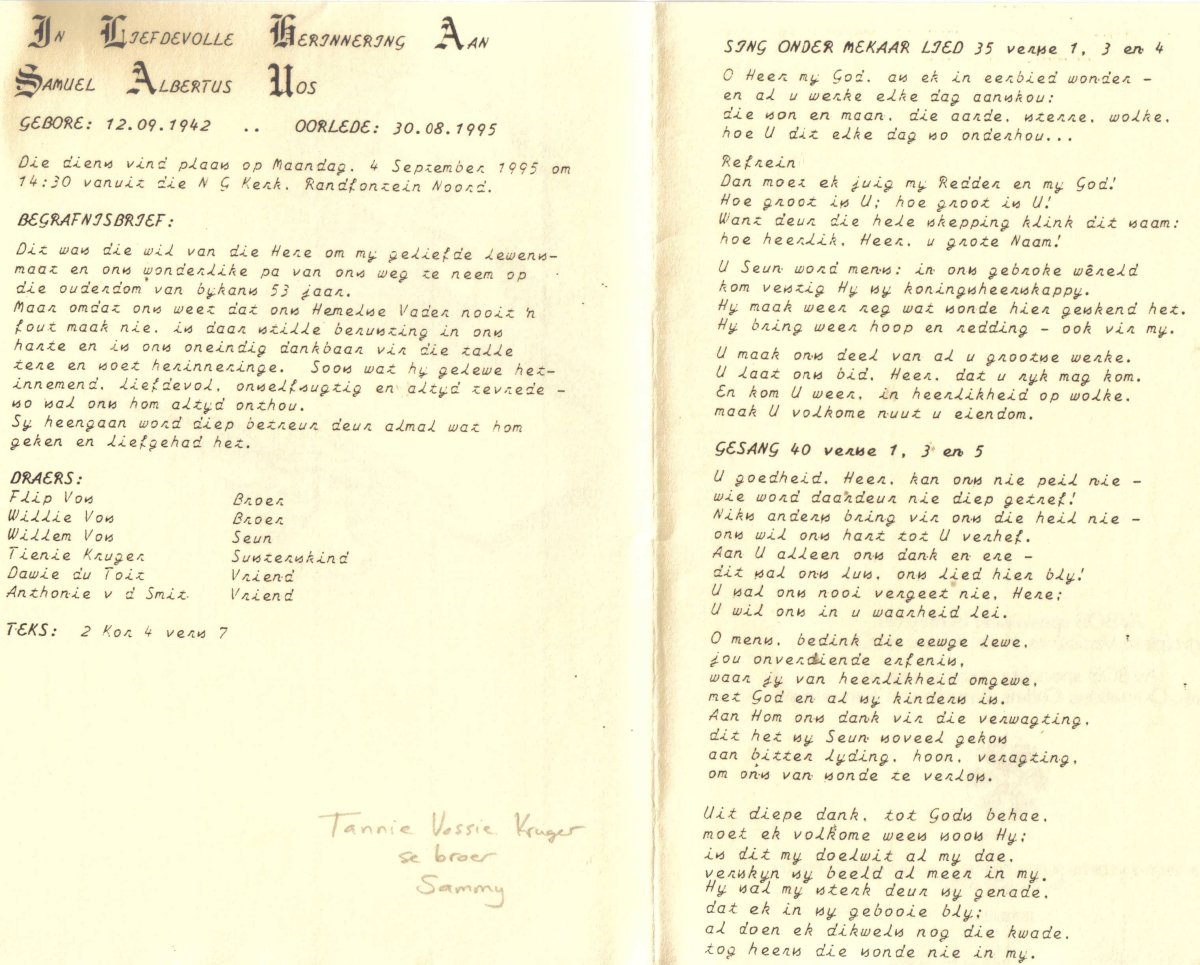 In Liefdevolle Herinnering Aan
Samuel Albertus Vos
GEBORE: 12.09.1942 .. OORLEDE: 30.08.1995
Die diens vind plaas op Maandag, 4 September 1995 om
14:30 vanuit die N G Kerk, Randfontein Noord.
BEGRAFNISBRIEF:
Dit was die wil van die Here om my geliefde lewens-
maat en ons wonderlike pa van ons weg te neem op
die ouderdom van bykans 53 jaar.
Maar omdat ons weet dat ons Hemelse Vader nooit 'n
fout maak nie, is daar stille berusting in ons
harte en is ons oneindig dankbaar vir die talle
tere en soet herinneringe. Soos wat hy gelewe het-
innemend, liefdevol, onselfsugtig en altyd tevrede -
so sal ons hom altyd onthou.
Sy heengaan word diep betreur deur almal wat hom
geken en liefgehad het.
DRAERS:
Flip Vos Broer
Willie Vos Broer
Willem Vos Seun
Tienie Kruger Susterskind
Dawie du Toit Vriend
Anthonie v d Smit Vriend
TEKS: 2 Kor 4 vers 7
Tannie Vossie Kruger
se broer
Sammy
SING ONDER MEKAAR LIED 35 verse 1, 3 en 4
O Heer my God, as ek in eerbied wonder -
en al u werke elke dag aanskou:
die son en maan, die aarde, sterre, wolke,
hoe U dit elke dag so onderhou...
Refrein
Dan moet ek juig my Redder en my God!
Hoe groot is U; hoe groot is U!
Want deur die hele skepping klink dit saam:
hoe heerlik, Heer, u grote Naam!
U Seun word mens: in ons gebroke wêreld
kom vestig Hy sy koningsheerskappy.
Hy maak weer reg wat sonde hier geskend het.
Hy bring weer hoop en redding - ook vir my.
U maak ons deel van al u grootse werke.
U laat ons bid, Heer, dat u ryk mag kom.
En kom U weer, in heerlikheid op wolke,
maak U volkome nuut u eiendom.
GESANG 40 verse 1, 3 en 5
U goedheid, Heer, kan ons nie peil nie -
wie word daardeur nie diep getref!
Niks anders bring vir ons die heil nie -
ons wil ons hart tot U verhef.
Aan U alleen ons dank en ere -
dit sal ons lus, ons lied hier bly!
U sal ons nooi vergeet nie, Here;
U wil ons in u waarheid lei.
O mens, bedink die eewge lewe,
jou onverdiende erfenis,
waar jy van heerlikheid omgewe,
met God en al sy kinders is.
Aan Hom ons dank vir die verwagting,
dit het sy Seun soveel gekos
aan bitter lyding, hoon, veragting,
om ons van sonde te verlos.
Uit diepe dank, tot Gods behae,
moet ek volkome wees soos Hy;
is dit my doelwit al my dae,
verskyn sy beeld al meer in my.
Hy sal my sterk deur sy genade,
dat ek in sy gebooie bly;
al doen ek dikwels nog die kwade,
tog heers die sonde nie in my.